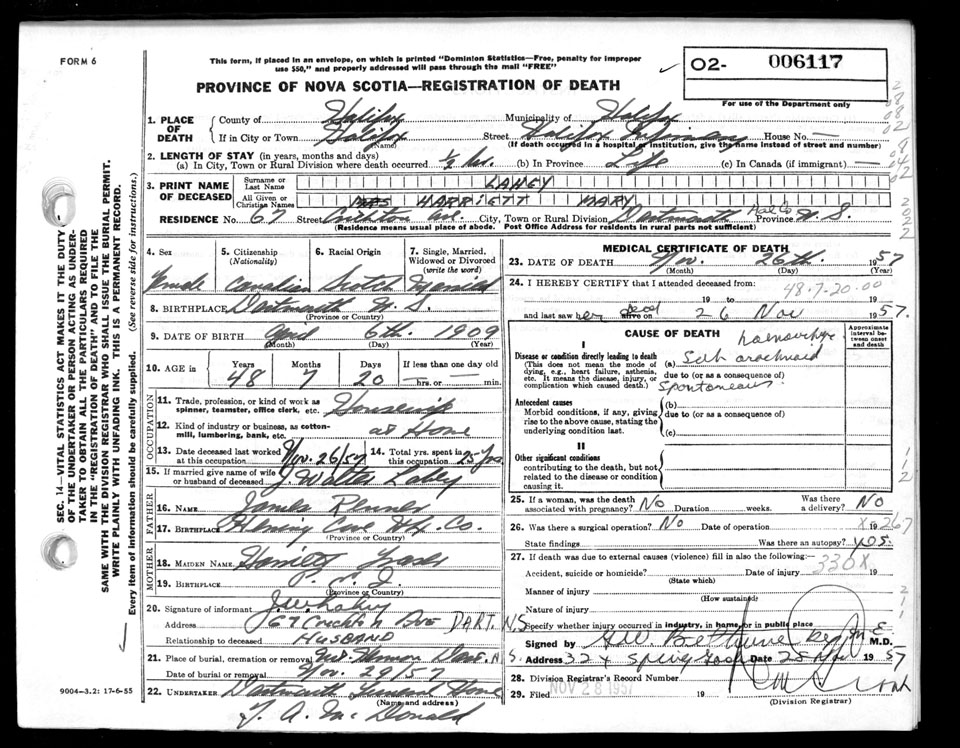 FORM 6
This form, if placed in an envelope, on which is printed "Dominion Statistics—Free, penalty for improper
use $50," and properly addressed will pass through the mail "FREE"
O2- 006117
For use of the Department only
PROVINCE OF NOVA SCOTIA—REGISTRATION OF DEATH
1. PLACE OF DEATH
County of Halifax Municipality of Halifax
If in City or Town Halifax Street Halifax Infirmary House No. —
(Name) (If death occurred in a hospital or institution, give the name instead of street and number)
2. LENGTH OF STAY (in years, months and days)
(a) In City, Town or Rural Division where death occurred 1/2 hr. (b) In Province Life (c) In Canada (if immigrant) —
3. PRINT NAME OF DECEASED
Surname or Last Name LAHEY
All Given or Christian Names HARRIETT MARY
RESIDENCE No. 67 Street Crichton Ave. City, Town or Rural Division Dartmouth Hal Co Province N.S.
(Residence means usual place of abode. Post Office Address for residents in rural parts not sufficient)
4. Sex
5. Citizenship (Nationality)
6. Racial Origin
7. Single, Married, Widowed or Divorced (write the word)
Female Canadian Scotch Married
8. BIRTHPLACE Dartmouth N.S.
(Province or Country)
9. DATE OF BIRTH April 6th 1909
(Month) (Day) (Year)
10. AGE in Years Months Days If less than one day old
48 7 20 hrs. or min.
OCCUPATION
11. Trade, profession, or kind of work as spinner, teamster, office clerk, etc. Housewife
12. Kind of industry or business, as cotton-mill, lumbering, bank, etc. at Home
13. Date deceased last worked at this occupation Nov. 26/57 14. Total yrs. spent in this occupation 25 yrs
15. If married give name of wife or husband of deceased J. Walter Lahey
FATHER
16. NAME James Renner
17. BIRTHPLACE Herring Cove Hfx. Co.
(Province or Country)
MOTHER
18. MAIDEN NAME Harriett
19. BIRTHPLACE P.E.I.
(Province or Country)
20. Signature of informant J.W. Lahey
Address 67 Crichton Ave DART. N.S.
Relationship to deceased HUSBAND
21. Place of burial, cremation or removal Mt Hermon Dart. N.S.
Date of burial or removal Nov. 29/57
22. UNDERTAKER Dartmouth Funeral Home
(Name and address)
T. A. McDonald
MEDICAL CERTIFICATE OF DEATH
23. DATE OF DEATH Nov. 26th. 1957
(Month) (Day) (Year)
24. I HEREBY CERTIFY that I attended deceased from:
48.7.20.00
19 to 19
and last saw her dead alive on 26 Nov 1957.
CAUSE OF DEATH
Approximate interval between onset and death
I
Disease or condition directly leading to death (a) Sub arachnoid haemorrhage
(This does not mean the mode of dying, e.g., heart failure, asthenia, etc. It means the disease, injury, or complication which caused death.)
due to (or as a consequence of)
spontaneous
Antecedent causes (b)
Morbid conditions, if any, giving rise to the above cause, stating the underlying condition last.
due to (or as a consequence of)
(c)
II
Other significant conditions
contributing to the death, but not related to the disease or condition causing it.
25. If a woman, was the death associated with pregnancy? No Duration weeks. Was there a delivery? No
26. Was there a surgical operation? No Date of operation 19
State findings Was there an autopsy? yes.
27. If death was due to external causes (violence) fill in also the following:
330X
Accident, suicide or homicide? Date of injury 19
(State which)
Manner of injury
(How sustained)
Nature of injury
Specify whether injury occurred in industry, in home, or in public place
Signed by G W Bethune M.D.
Address 324 Spring Garden Date 28 Nov 1957
28. Division Registrar's Record Number
29. Filed NOV 28 1957 19
(Division Registrar)
9004—3.2: 17-6-55
SEC. 14—VITAL STATISTICS ACT MAKES IT THE DUTY
OF THE UNDERTAKER OR PERSON ACTING AS UNDERTAKER TO OBTAIN ALL THE PARTICULARS REQUIRED
IN THE "REGISTRATION OF DEATH" AND TO FILE THE
SAME WITH THE DIVISION REGISTRAR WHO SHALL ISSUE THE BURIAL PERMIT.
WRITE PLAINLY WITH UNFADING INK. THIS IS A PERMANENT RECORD.
Every item of information should be carefully supplied. (See reverse side for instructions.)